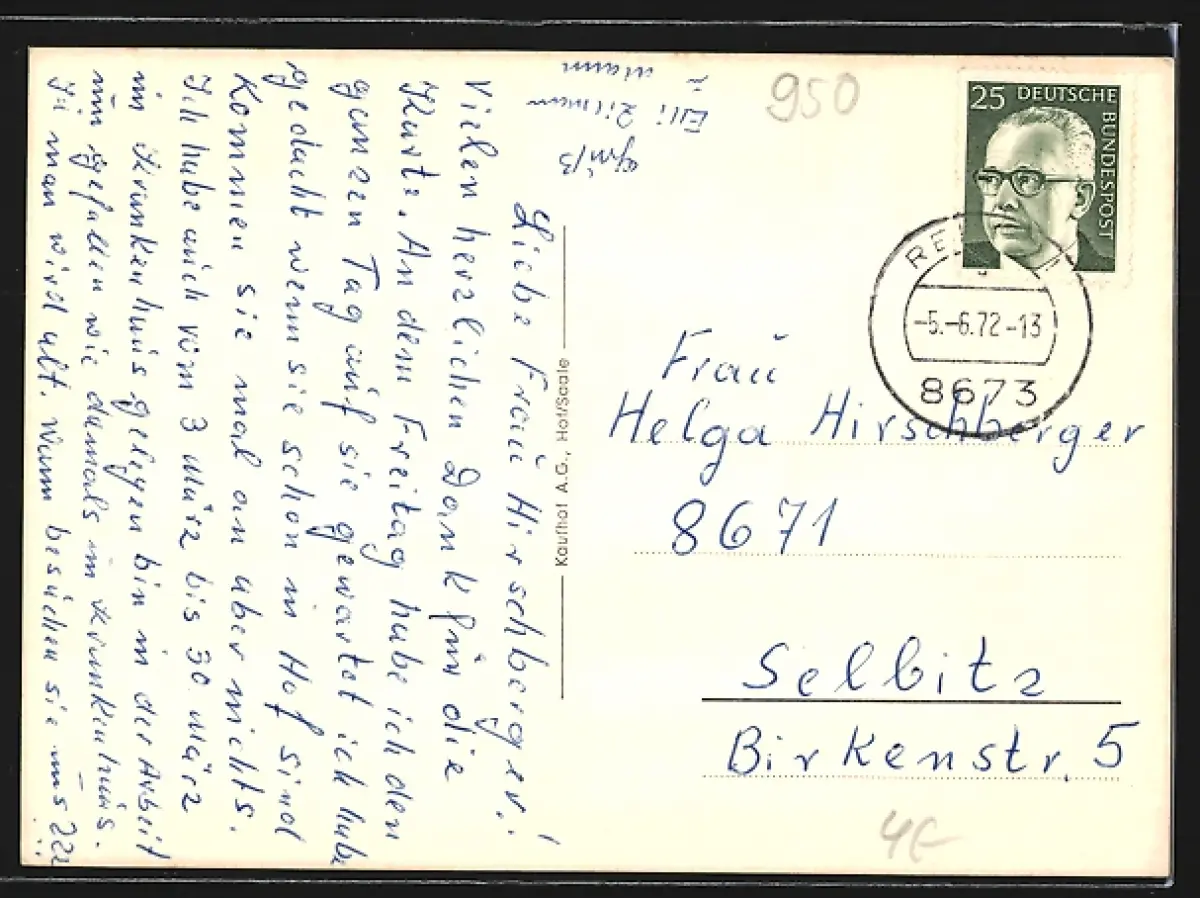 Liebe Fraü Hirschberger!
Vielen herzlichen Dank für die
Karte. An dem Freitag habe ich den
ganzen Tag aüf sie gewartet ich habe
gedacht wenn sie schon in Hof sind
Kommen sie mal an aber nichts.
Ich habe mich vom 3 März bis 30 März
im Krankenhaüs gelegen bin in der Arbeit
gefallen wie damals im Krankenhaüs.
Ja man wird alt. Wann besüchen sie üns
Grüß
Elli
950
25 DEUTSCHE
BUNDESPOST
-5.-6.72-13
8673
Kaufhof A.G., Hof/Saale
Fraü
Helga Hirschberger
8671
Selbitz
Birkenstr. 5
4€-